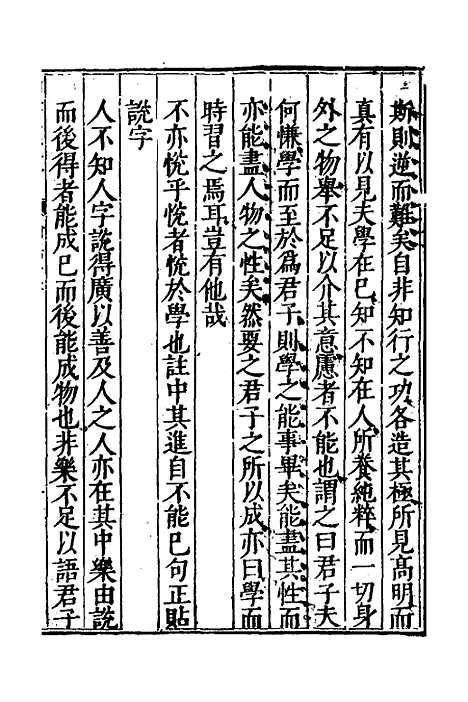 斯則逆而難矣自非知行之功各造其極所見高明而
真有以見夫學在已知不知在人所養純粹而一切身
外之物舉不足以介其意慮者不能也謂之曰君子夫
何慊學而至於為君子則學之能事畢矣能盡其性而
亦能盡人物之性矣然要之君子之所以成亦曰學而
時習之焉耳豈有他哉
不亦悅乎悅者悅於學也註中其進自不能已句正貼
說字
人不知人字說得廣以善及人之人亦在其中樂由說
而後得者能成已而後能成物也非樂不足以語君子